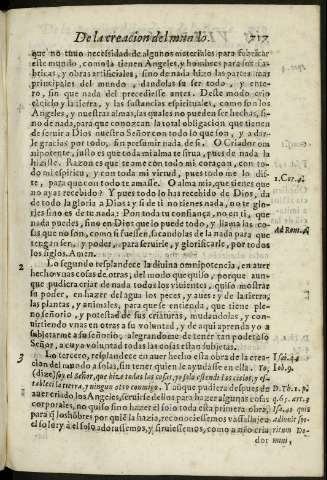 De la creacion del mundo. 717
que no tuuo necessidad de algunos materiales para fabricar
este mundo, como la tienen Angeles, y hombres para sus fa-
bricas, y obras artificiales, sino de nada hizo las partes mas
principales del mundo, dandolas su ser todo, y ente-
ro, sin que nada del precediesse antes. Deste modo crio
el cielo y la tierra, y las sustancias espirituales, como son los
Angeles, y nuestras almas, las quales no pueden ser hechas, si-
no de nada, para que conozcan la total obligacion que tienen
de seruir a Dios nuestro Señor con todo lo que son, y a dar-
le gracias por todo, sin presumir nada de si. O Criador om
nipotente, justo es que toda mi alma te sirua, pues de nada la
hiziste. Razon es que te ame con todo mi coraçon, con to-
do mi espiritu, y con toda mi virtud, pues todo me lo dis-
te, para que con todo te amasse. O alma mia, que tienes que
no ayas recebido? Y pues todo lo has recebido de Dios, da
de todo la gloria a Dios; y si de ti no tienes nada, no te glo-
ries sino es de tu nada: Pon toda tu confiança, no en ti, que
nada puedes, sino en Dios que lo puede todo, y llama las co-
sas que no son, como si fuessen, sacandolas de la nada para que
tengan ser, y poder, para seruirle, y glorificarle, por todos
los siglos. Amen.
1. Cor. 4.
Ad Rom. 4.
2 Lo segundo resplandece la diuina omnipotencia, en auer
hecho vnas cosas de otras, del modo que quiso, porque aun-
que pudiera criar de nada todos los viuientes, quiso mostrar
su poder, en hazer del agua los peces, y aues: y de la tierra,
las plantas, y animales, para que se entienda, que tiene ple-
no señorio, y potestad de sus criaturas, mudandolas, y con-
uirtiendo vnas en otras a su voluntad, y de aqui aprenda yo a
subjetarme a su señorio, alegrandome de tener tan poderoso
Señor, a cuya voluntad todas las cosas estan subjetas.
3 Lo tercero, resplandece en auer hecho esta obra de la crea-
cion del mundo a solas, sin tener quien le ayudasse en ella. Yo,
(dize) soy el Señor, que hize todas las cosas, yo solo estendi los cielos, y es-
tableci la tierra, y ninguno otro conmigo. Y aunque pudiera despues de
auer criado los Angeles, seruirse dellos para hazer algunas cosas
corporales, no quiso sino hazer el solo toda esta primera obra,
para q̃ los hõbres por quiẽ la hazia, reconociessemos vassallaje a
el solo: y à el solo adorassemos, y siruiessemos, como a nuestro
dor
Isai. 44
Iob. 9.
D. Th. 1. p.
q. 65. art. 3
Isai. 40